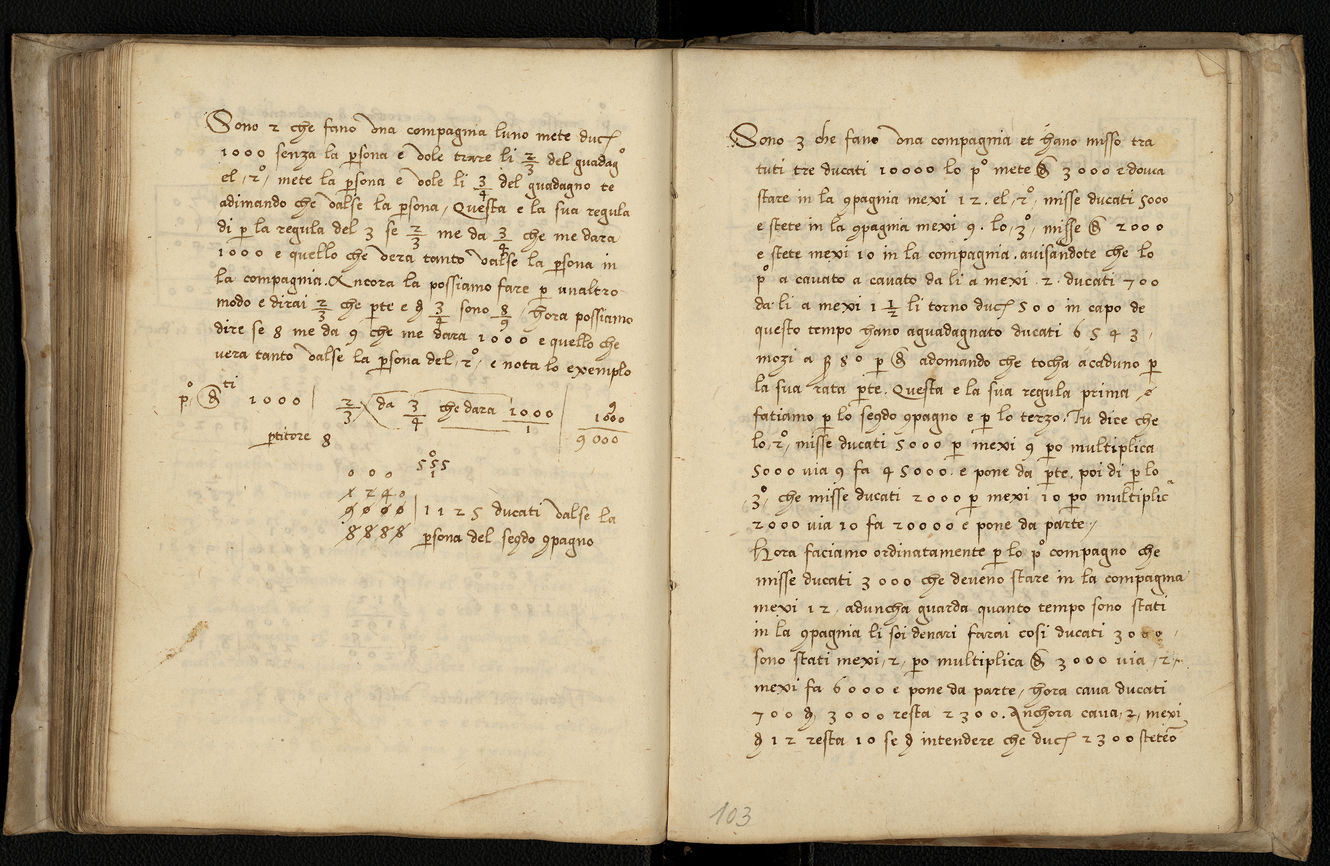 Sono 2 che fano una compagnia luno mete duc
1000 senza la psona e vole trare li 2/3 del guadag°
el 2° mete la psona e vole li 3/4 del guadagno te
adimando che valse la psona, Questa e la sua regula
di p la regula del 3 se 2/3 me da 3/4 che me dara
1000 e quello che vera tanto valse la psona in
la compagnia. Ancora la possiamo fare p unaltro
modo e dirai 2/3 che pte e d 3/4 sono 8/9, hora possiamo
dire se 8 me da 9 che me dara 1000 e quello che
vera tanto valse la psona del, 2°, e nota lo exemplo
p° ti 1000 2/3 da 3/4 che dara 1000/1 9
1000
ptitore 8 9000
0
555
000 1
1240
9000 1125 ducati valse la
8888 psona del sec9do 9pagno
Sono 3 che fano una compagnia et hano misso tra
tuti tre ducati 10000 lo p° mete 3000 e doma
stare in la 9pagnia mexi 12. el, 2°, misse ducati 5000
e stete in la 9pagnia mexi 9. lo, 3°, misse 2000
e stete mexi 10 in la compagnia. avisandote che lo
p° a cavato a cavato da li a mexi 2 ducati 700
da li a mexi 1 1/2 li torno duc 500 in capo de
questo tempo hano aguadagnato ducati 6543,
mozi a 80 p adomando che tocha acaduno p
la sua rata pte. Questa e la sua regula prima
fatiamo p lo se9do 9pagno e p lo terzo. Tu dice che
lo, 2°, misse ducati 5000 p mexi 9 po multiplica
5000 via 9 fa 45000. e pone da pte. poi di p lo
3°, che misse ducati 2000 p mexi 10 po multiplica
2000 via 10 fa 20000 e pone da parte,
Hora faciamo ordinatamente p lo p° compagno che
misse ducati 3000 che deveno stare in la compagnia
mexi 12, aduncha guarda quanto tempo sono stati
in la 9pagnia li soi denari farai cosi ducati 3000,
sono stati mexi, 2, po multiplica 3000 via, 2,
mexi fa 6000 e pone da parte, hora cava ducati
700 d 3000 resta 2300. Anchora cava, 2, mexi
d 12 resta 10 se d intendere che duc 2300 steteo
103